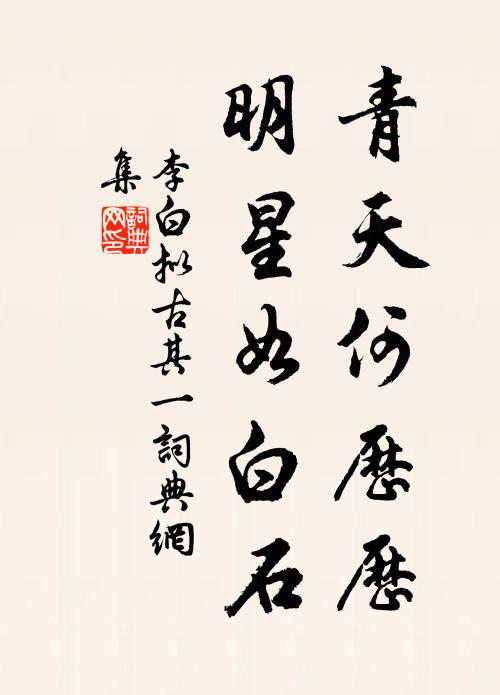 青天何歷歷
明星如白石
李白拟古其一詞典網
集
詞典
网印